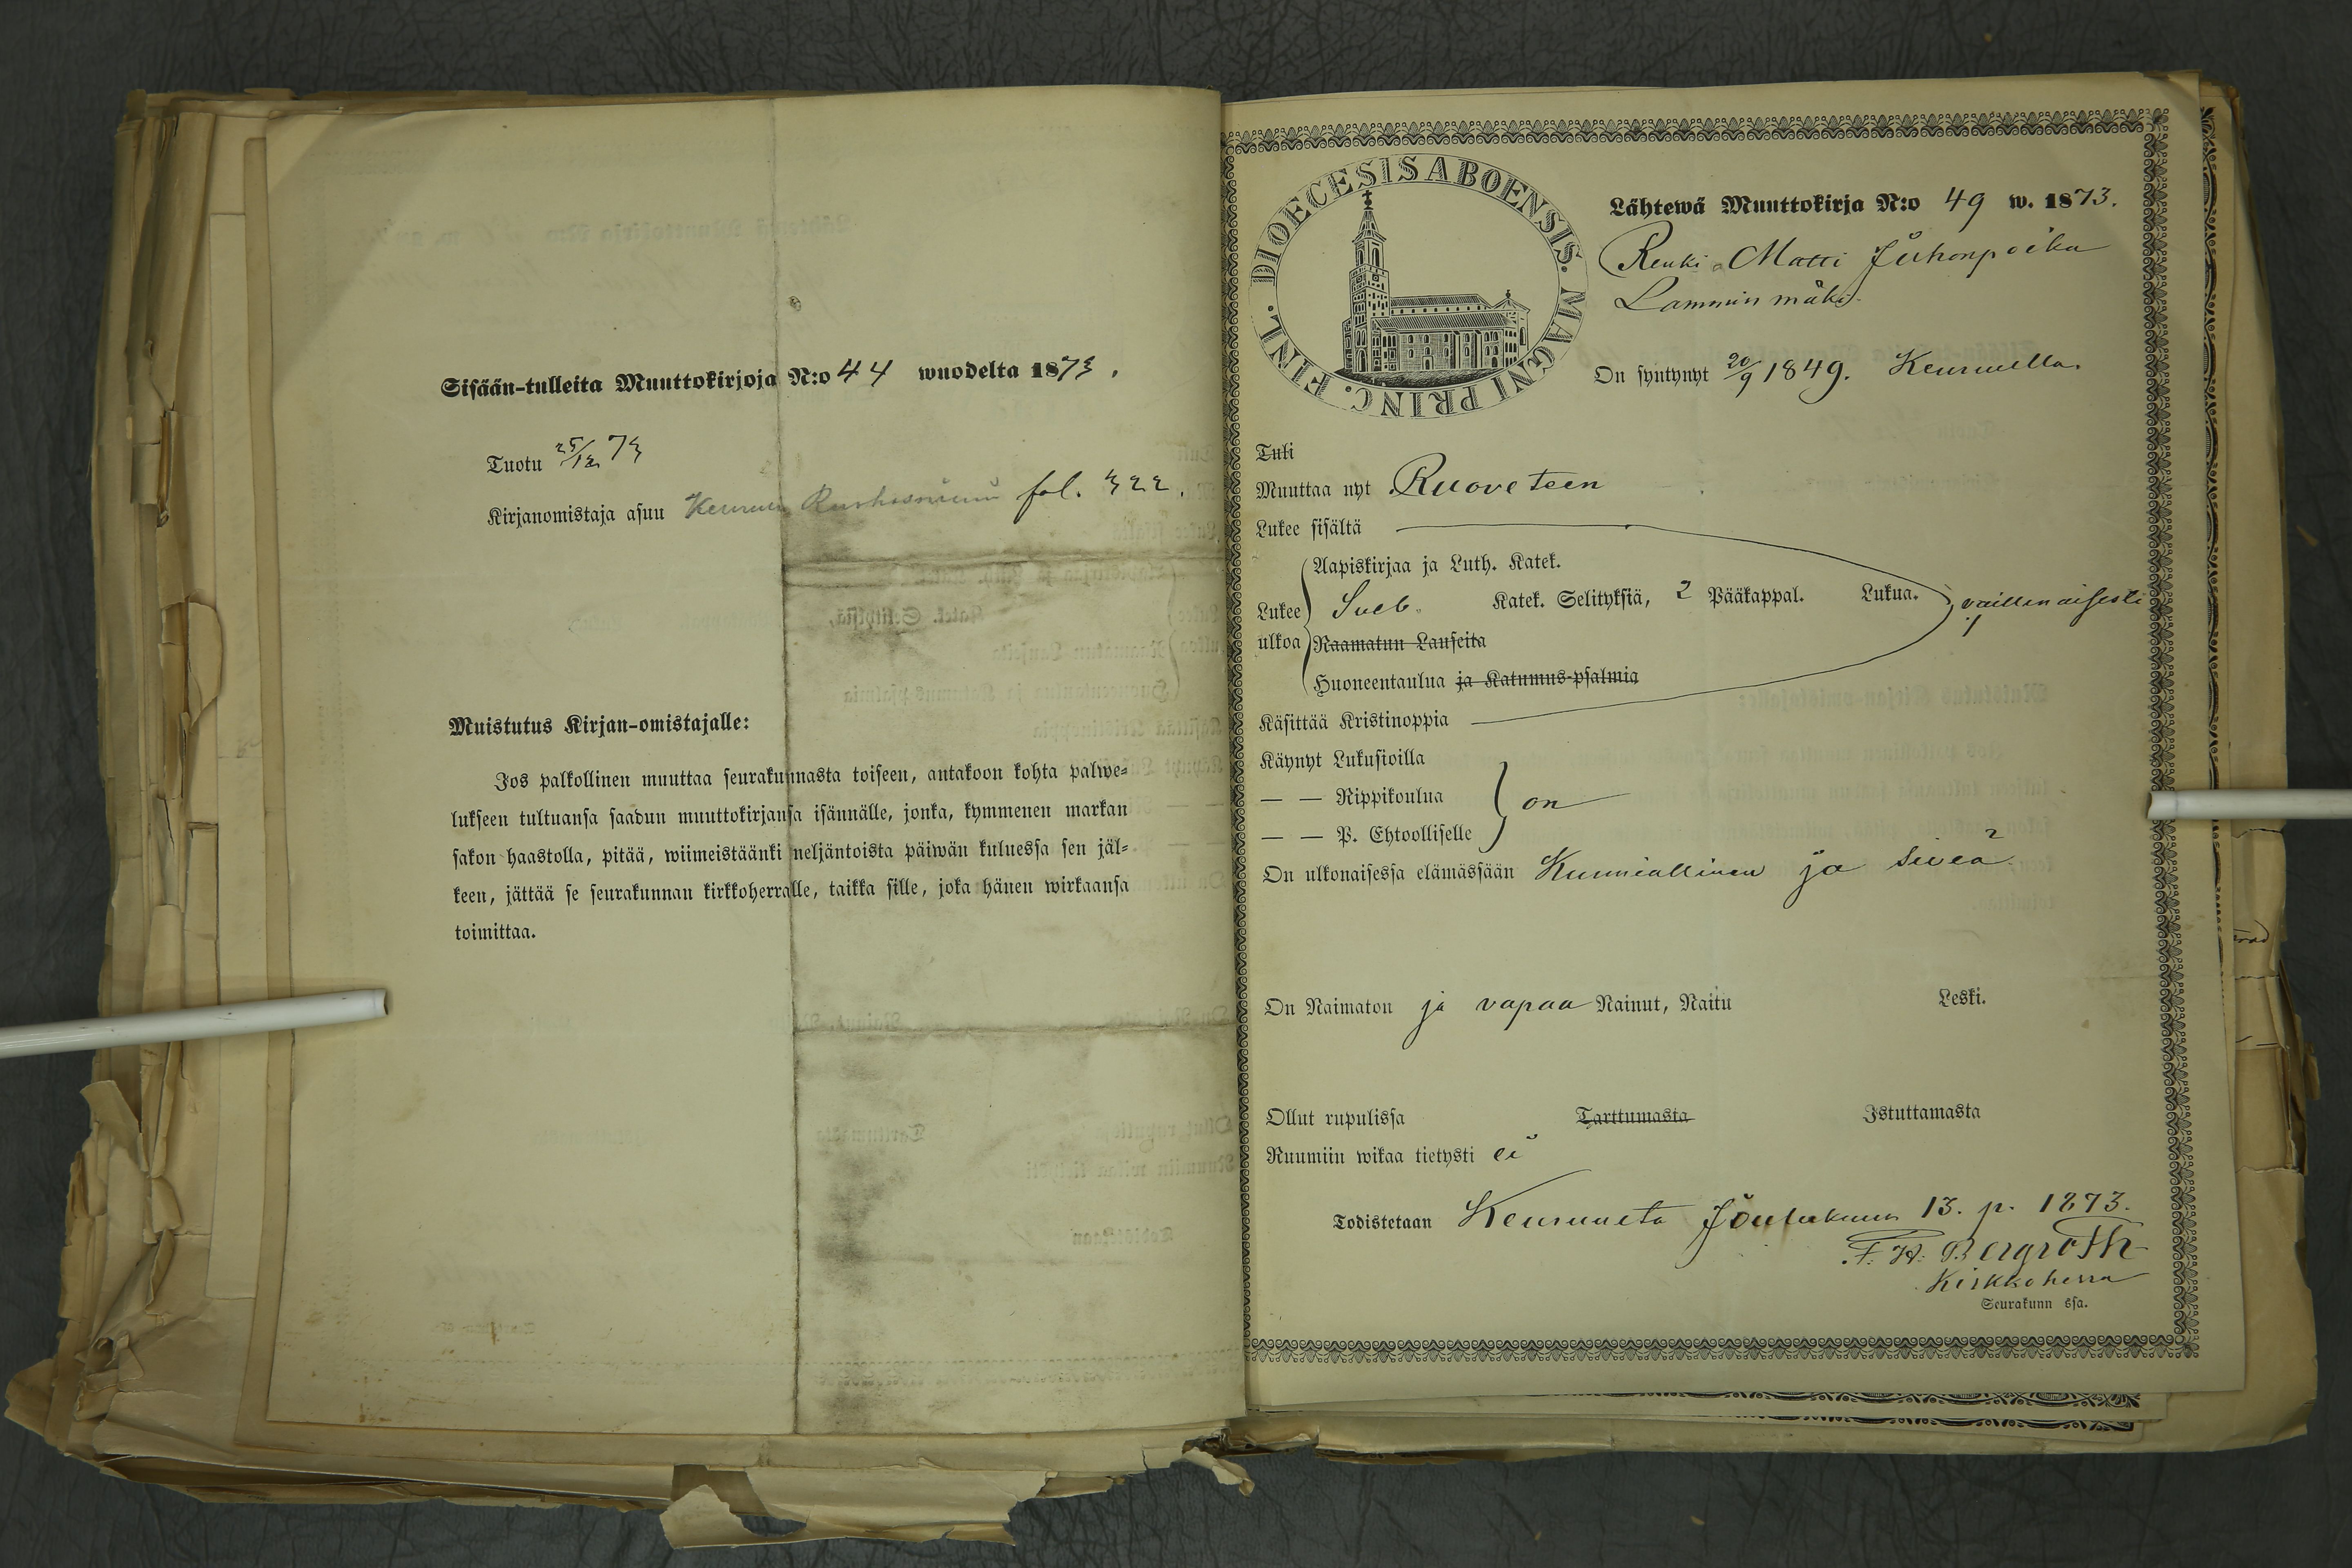 Sisään-tulleita Muuttokirjoja N:o 44 wuodelta 1873.
Tuotu 25/12 73
Kirjanomistaja asuu Keuruu fol. 322.
Muistutus Kirjan-omistajalle:
Jos palkollinen muuttaa seurakunnasta toiseen, antakoon kohta palwe-
lukseen tultuansa saadun muuttokirjansa isännälle, jonka, kymmenen markan
sakon haastolla, pitää, wiimeistäänki neljäntoista päiwän kuluessa sen jäl-
keen, jättää se seurakunnan kirkkoherralle, taikka sille, joka hänen wirkaansa
toimittaa.
DIOECESIS ABOENSIS. MAGNI PRINC. FINL.
Lähtewä Muuttokirja N:o 49 w. 1873.
Renki Matti Juhonpoika
Lamminmäki
On syntynyt 20/9 1849. Keuruulla.
Tuli
Muuttaa nyt Ruoveteen
Lukee sisältä
Aapiskirjaa ja Luth. Katek.
Lukee ulkoa Sveb. Katek. Selityksiä, 2 Pääkappal. Lukua. vaillinaisesti
Raamatun Lauseita
Huoneentaulua ja Katumus-psalmia
Käsittää Kristinoppia
Käynyt Lukusioilla
— — Rippikoulua on
— — P. Ehtoolliselle
On ulkonaisessa elämässään Kunniallinen ja siveä
On Naimaton ja vapaa Nainut, Naitu Leski.
Ollut rupulissa Tarttumasta Istuttamasta
Ruumiin wikaa tietysti ei
Todistetaan Keuruulta Joulukuun 13. p. 1873.
F. H. Bergroth
Kirkkoherra
Seurakunn ssa.